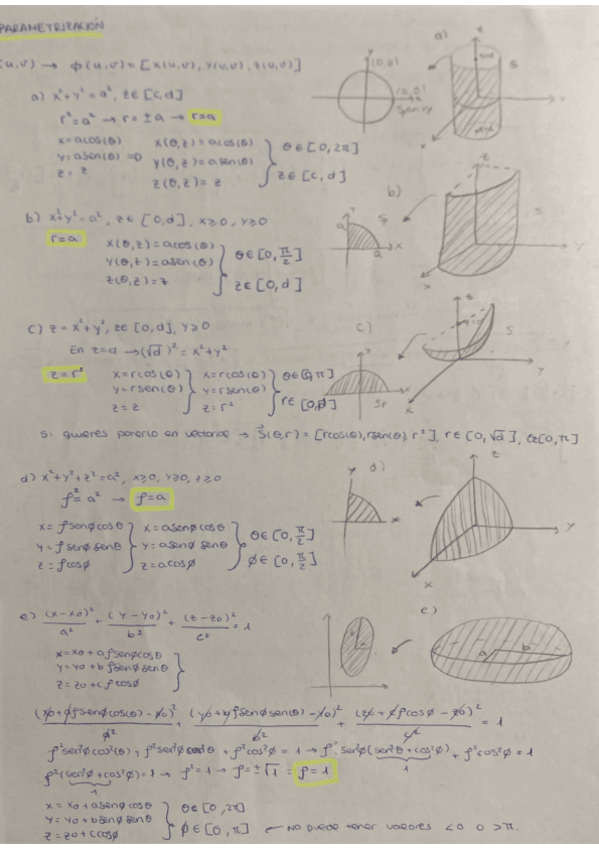 PARAMETRIZACIÓN
(u,v) → φ(u,v) = [x(u,v), y(u,v), z(u,v)]
a) x²+y² = a², z∈ [c,d]
r² = a² → r = ± a → r=a
x=acos(θ) x(θ,z)=acos(θ)
y=asen(θ) => y(θ,z)=asen(θ)
z = z z(θ,z)= z
θ∈ [0, 2π]
z∈ [c, d]
a)
y
(0,a)
(a,0)
x
z
S
x
b) x²+y² = a², z∈ [0,d], x≥0, y≥0
r=a
x(θ,z)=acos(θ)
y(θ,z)=asen(θ)
z(θ,z)=z
θ∈ [0, π/2]
z∈ [0, d]
b)
y
a
a
x
z
S
y
x
c) z = x²+y², z∈ [0,d], y≥0
En z=d → (√d)² = x²+y²
z=r²
x=rcos(θ) x=rcos(θ) θ∈[0,π]
y=rsen(θ) y=rsen(θ)
z=z z=r² r∈ [0,d]
c)
y
x
z
S
y
x
Si quieres ponerlo en vectorial → S(θ,r) = [rcos(θ), rsen(θ), r²], r∈ [0,√d], θ∈[0,π]
d) x²+y²+z² = a², x≥0, y≥0, z≥0
ρ² = a² → ρ=a
x= ρsenφcosθ x=asenφcosθ
y= ρsenφsenθ y=asenφsenθ
z= ρcosφ z=acosφ
θ∈ [0, π/2]
φ∈ [0, π/2]
d)
y
x
z
y
x
e) (x-x0)²/a² + (y-y0)²/b² + (z-z0)²/c² = 1
x=x0+aρsenφcosθ
y=y0+bρsenφsenθ
z=z0+cρcosφ
e)
a
b
(x0+aρsenφcos(θ)-x0)²/a² + (y0+bρsenφsen(θ)-y0)²/b² + (z0+cρcosφ-z0)²/c² = 1
ρ²sen²φcos²(θ) + ρ²sen²φsen²θ + ρ²cos²φ = 1 → ρ²sen²φ(sen²θ+cos²φ) + ρ²cos²φ = 1
1
ρ²(sen²φ+cos²φ)=1 → ρ²=1 → ρ=±√1 = ρ=1
1
x=x0+asenφcosθ
y=y0+bsenφsenθ
z=z0+ccosφ
θ∈ [0,2π]
φ∈ [0, π] ← No puede tener valores <0 o >π.